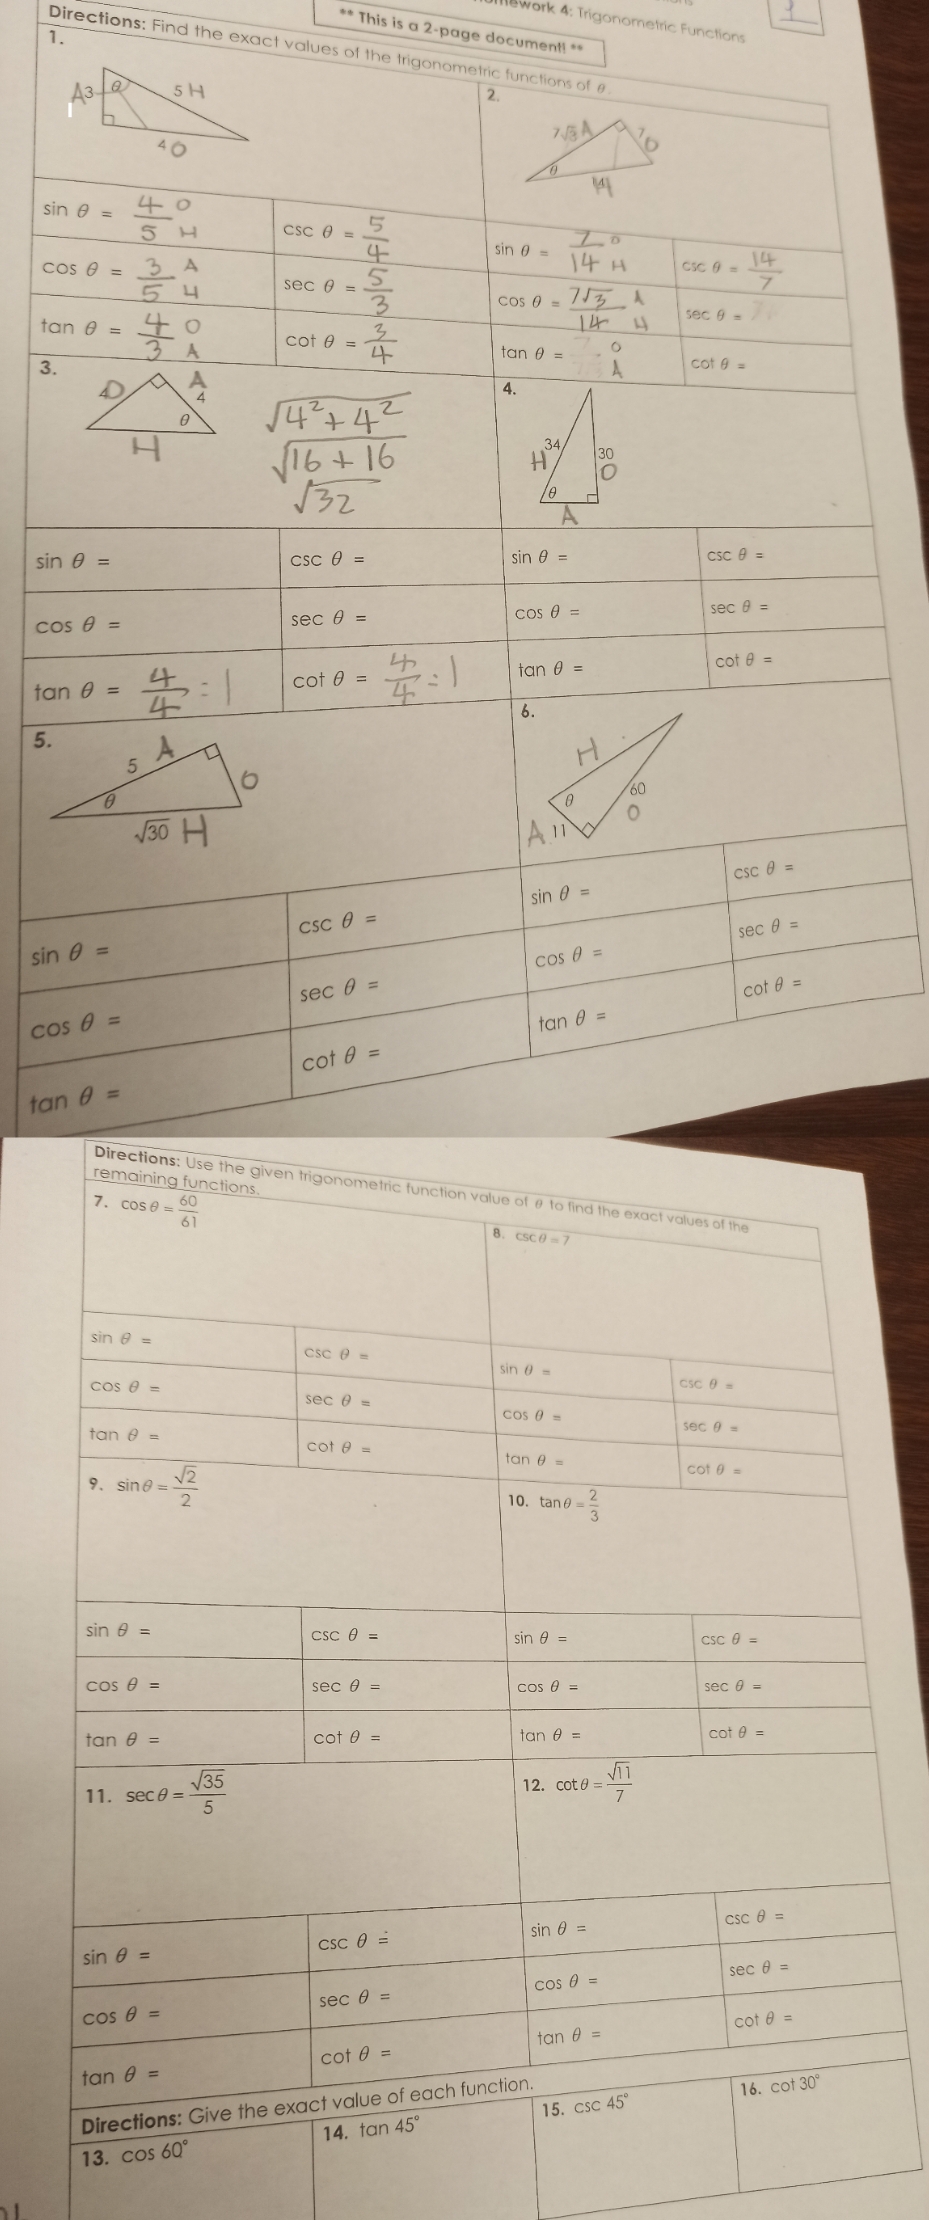 Homework 4: Trigonometric Functions
** This is a 2-page document! **
Directions: Find the exact values of the trigonometric functions of θ.
1.
A 3 θ 5 H
4 O
2.
7√3 A 7 O
θ
14 H
sin θ = 4/5 O H
csc θ = 5/4
cos θ = 3/5 A H
sec θ = 5/3
tan θ = 4/3 O A
cot θ = 3/4
sin θ = 7/14 O H
csc θ = 14/7
cos θ = 7√3/14 A H
sec θ =
tan θ = O A
cot θ =
3.
O A
4
θ
H
√4² + 4²
√16 + 16
√32
4.
34
H 30
O
θ
A
sin θ =
csc θ =
cos θ =
sec θ =
tan θ = 4/4 = 1
cot θ = 4/4 = 1
sin θ =
csc θ =
cos θ =
sec θ =
tan θ =
cot θ =
5.
5 A
θ O
√30 H
6.
H
θ 60
O
A 11
sin θ =
csc θ =
cos θ =
sec θ =
tan θ =
cot θ =
sin θ =
csc θ =
cos θ =
sec θ =
tan θ =
cot θ =
Directions: Use the given trigonometric function value of θ to find the exact values of the
remaining functions.
7. cos θ = 60/61
8. csc θ = 7
sin θ =
csc θ =
cos θ =
sec θ =
tan θ =
cot θ =
sin θ =
csc θ =
cos θ =
sec θ =
tan θ =
cot θ =
9. sin θ = √2/2
10. tan θ = 2/3
sin θ =
csc θ =
cos θ =
sec θ =
tan θ =
cot θ =
sin θ =
csc θ =
cos θ =
sec θ =
tan θ =
cot θ =
11. sec θ = √35/5
12. cot θ = √11/7
sin θ =
csc θ =
cos θ =
sec θ =
tan θ =
cot θ =
sin θ =
csc θ =
cos θ =
sec θ =
tan θ =
cot θ =
Directions: Give the exact value of each function.
13. cos 60°
14. tan 45°
15. csc 45°
16. cot 30°